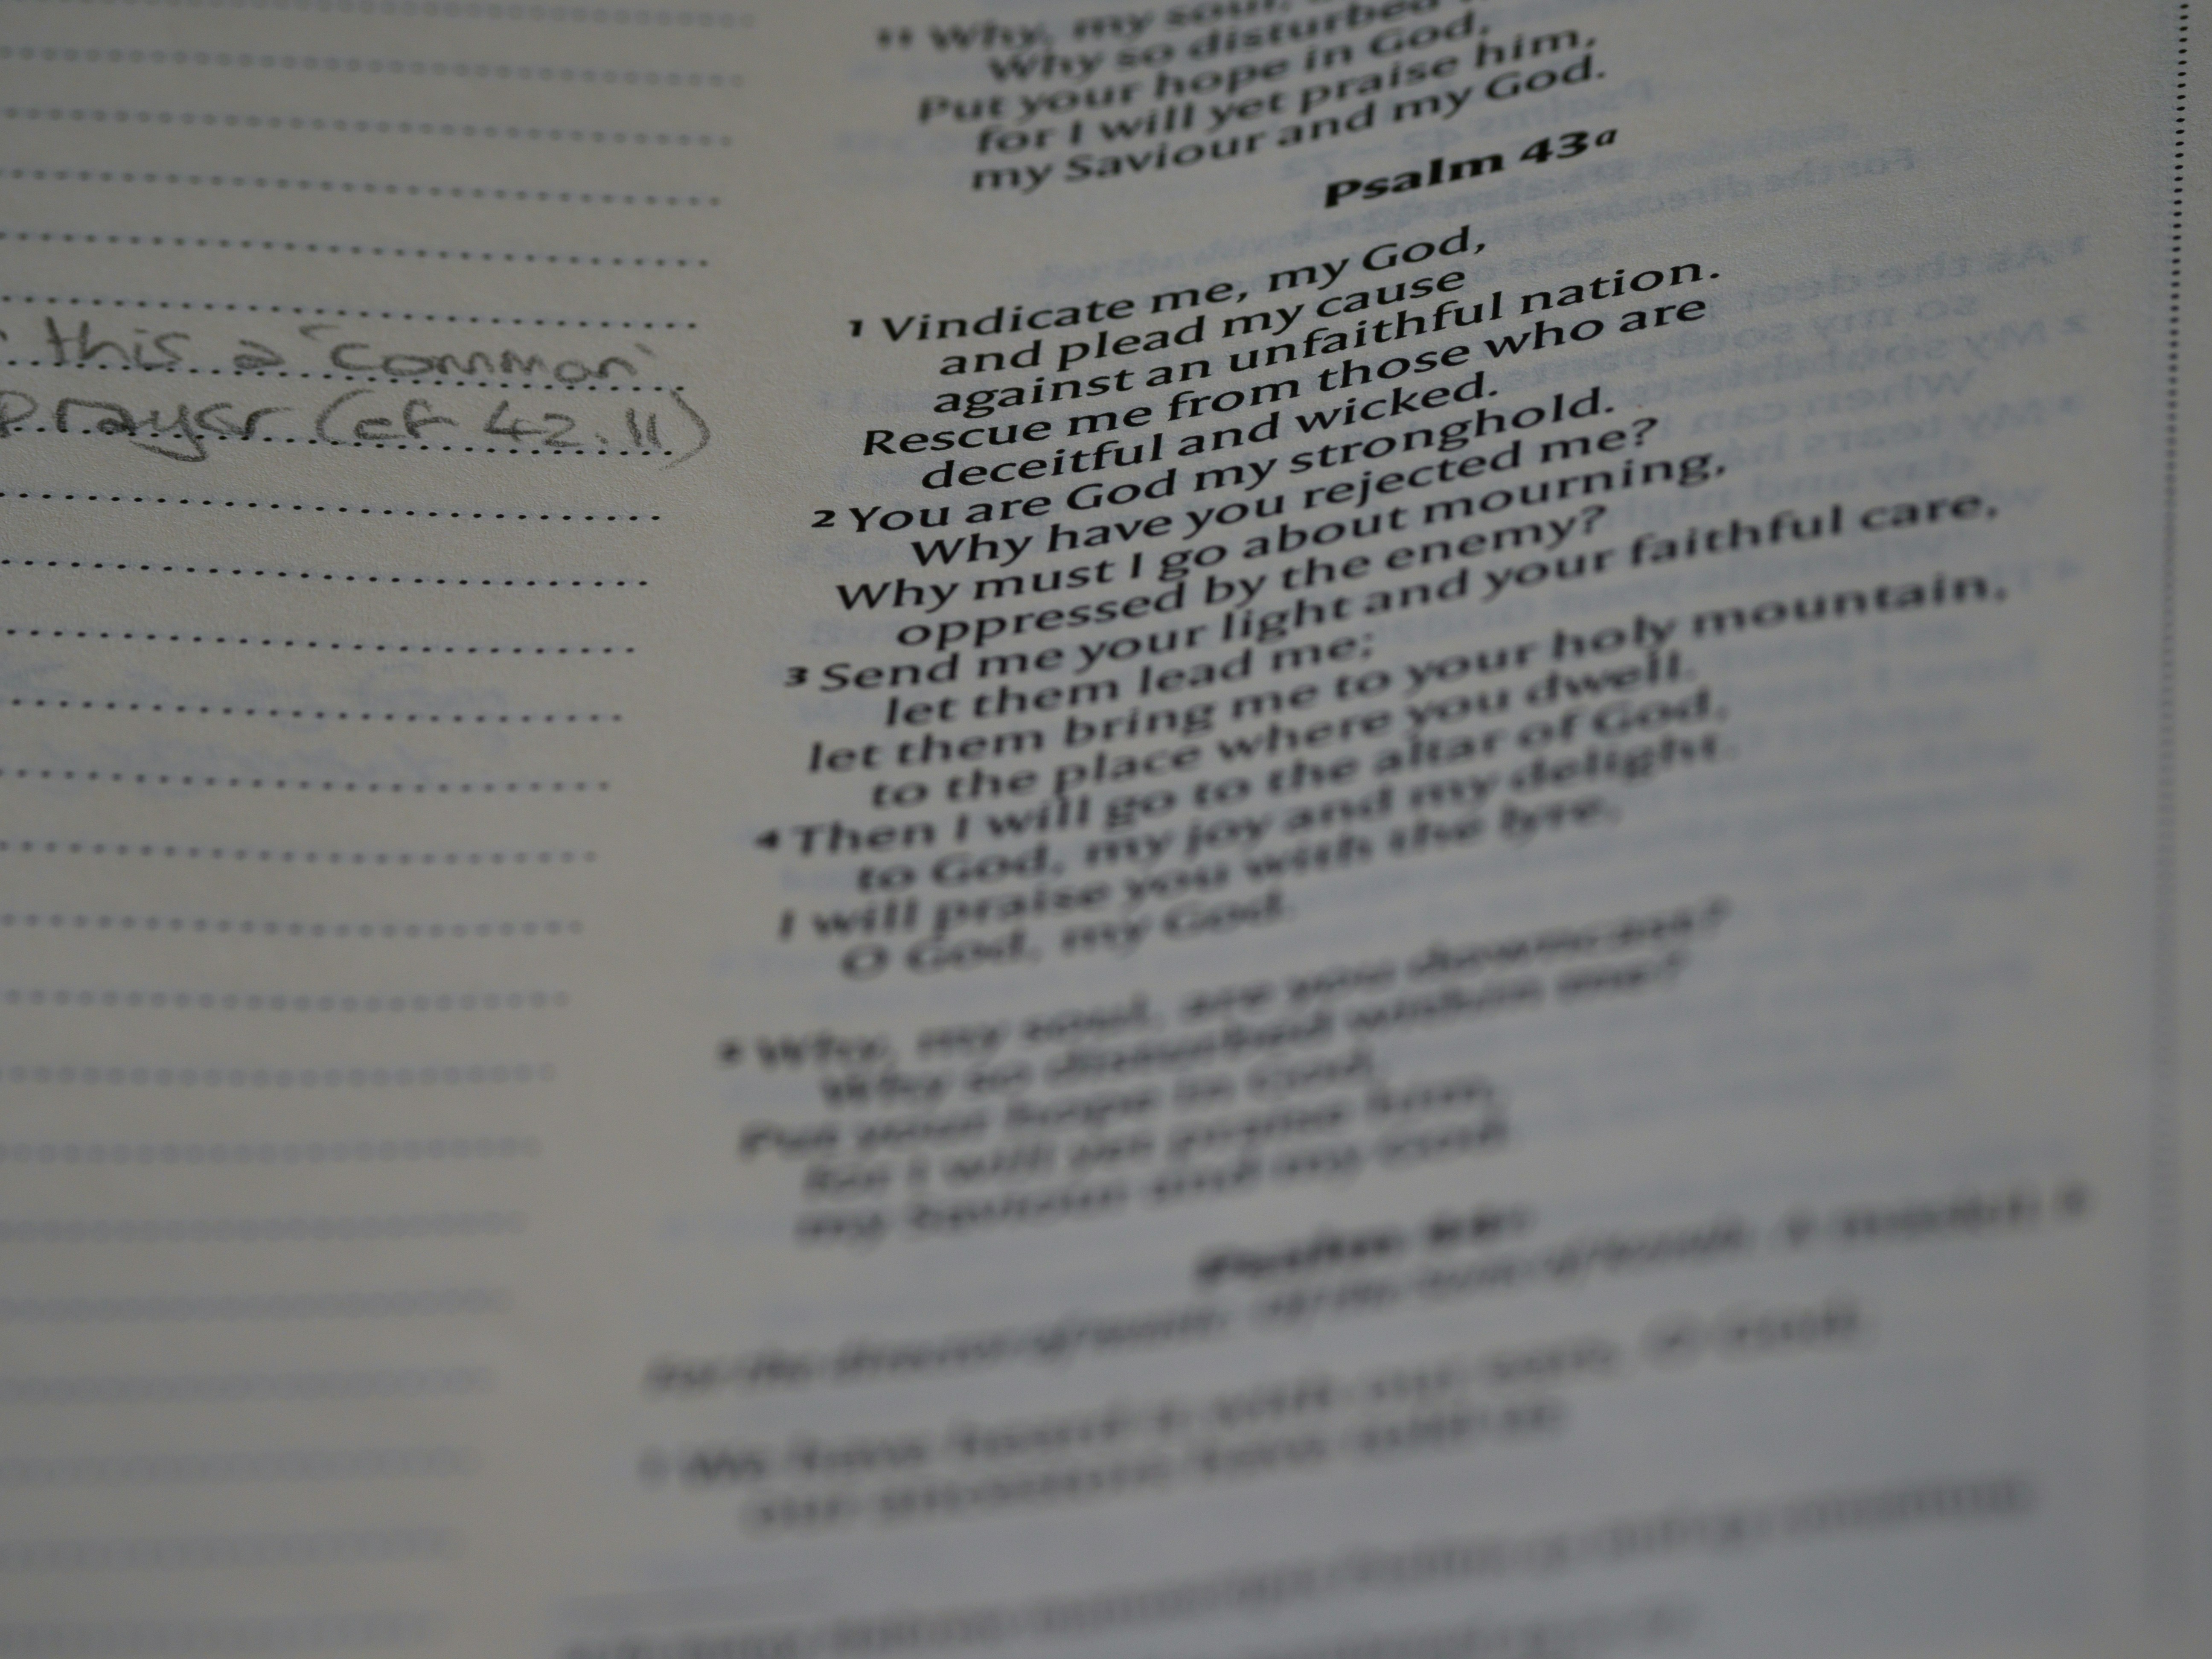 11 Why, my soul,
Why so disturbed
Put your hope in God,
for I will yet praise him,
my Saviour and my God.
Psalm 43a
1 Vindicate me, my God,
and plead my cause
against an unfaithful nation.
Rescue me from those who are
deceitful and wicked.
2 You are God my stronghold.
Why have you rejected me?
Why must I go about mourning,
oppressed by the enemy?
3 Send me your light and your faithful care,
let them lead me;
let them bring me to your holy mountain,
to the place where you dwell.
4 Then I will go to the altar of God,
to God, my joy and my delight.
I will praise you with the lyre,
O God, my God.
5 Why, my soul, are you downcast?
Why so disturbed within me?
Put your hope in God,
for I will yet praise him,
my Saviour and my God.
this a 'common'
Prayer (cf 42.11)